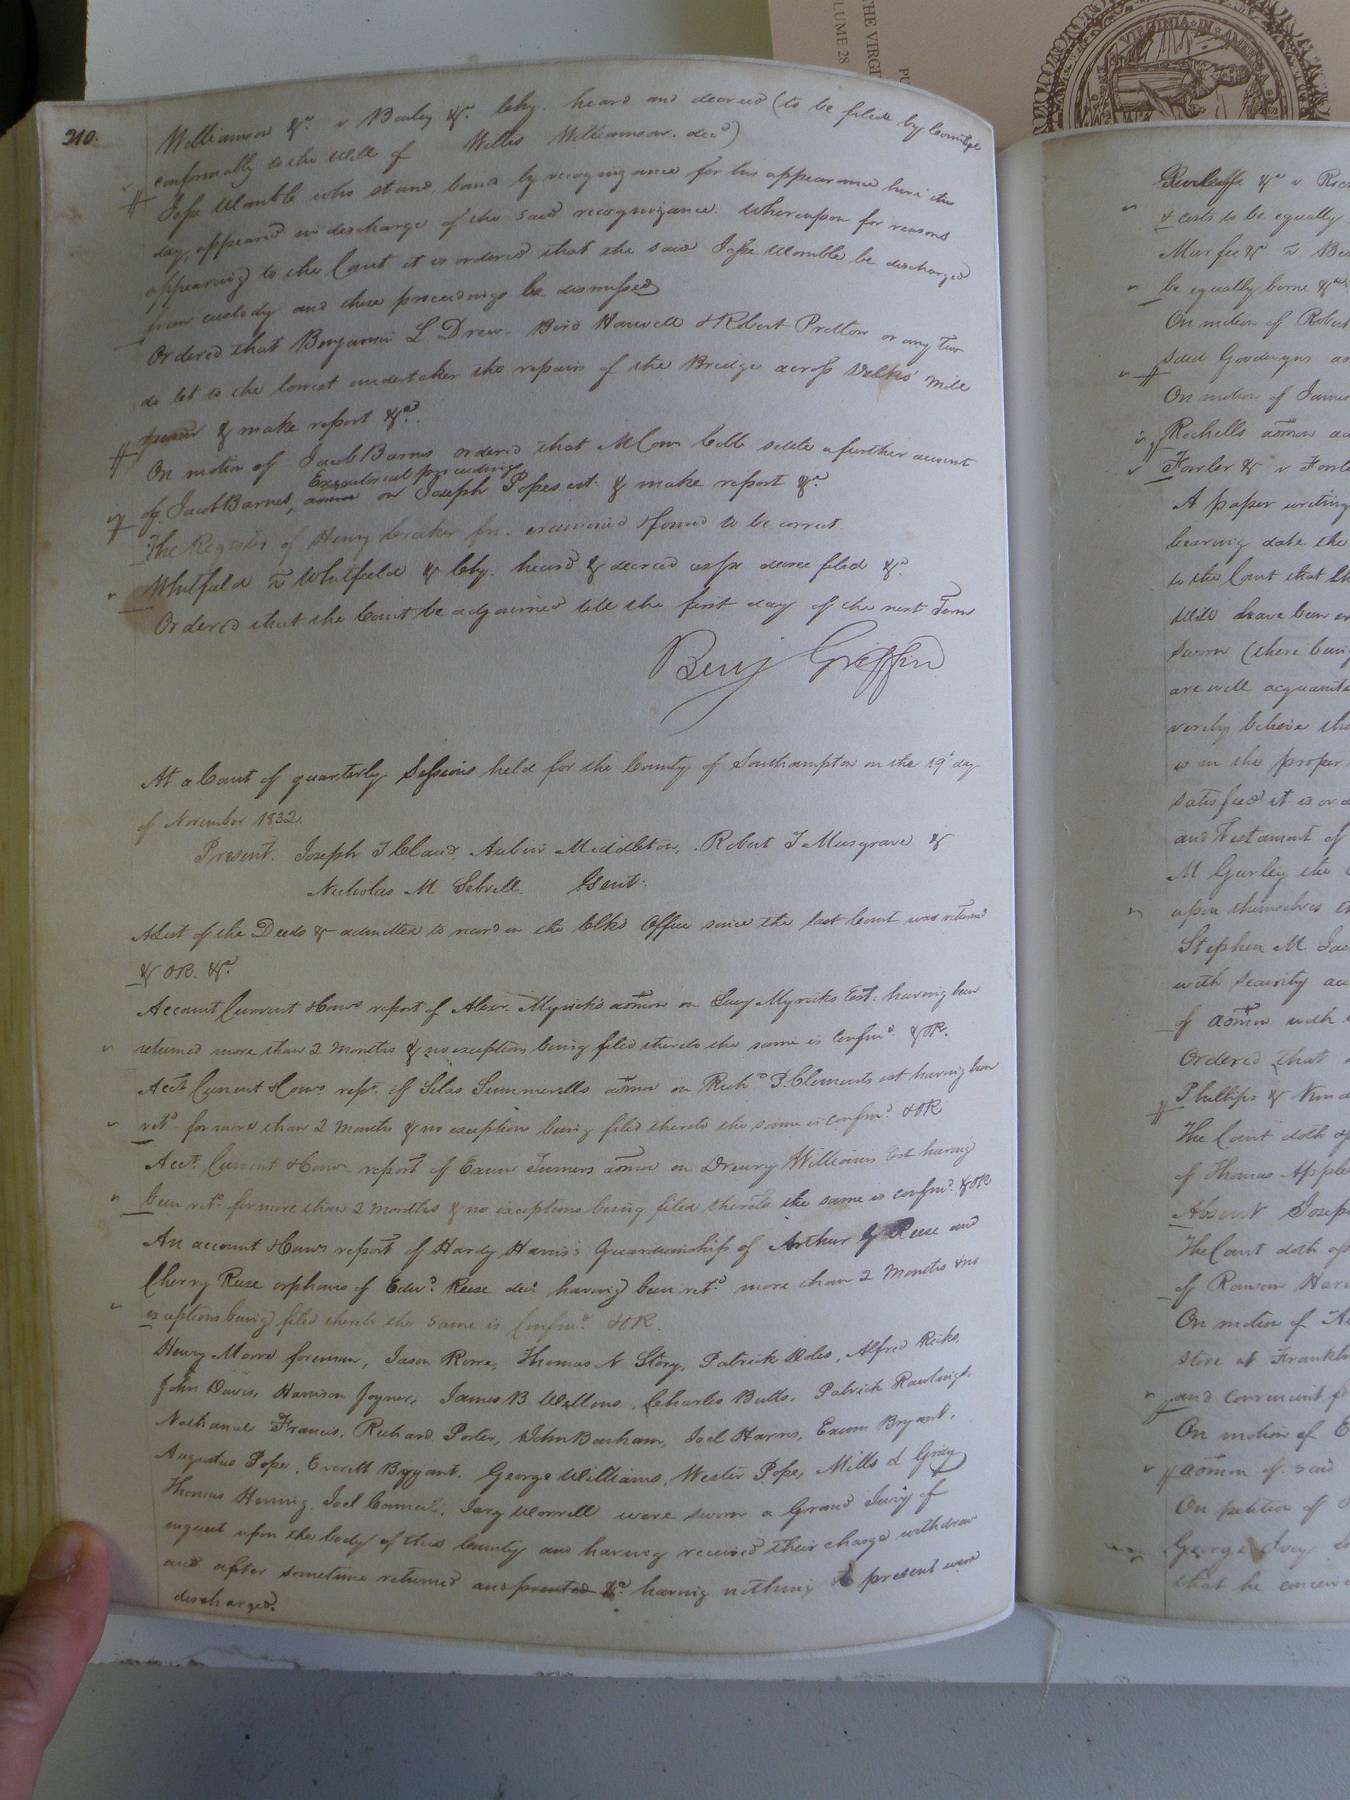 THE VIRGI
LUME 28
VIRGINIA IN AMER
210.
Williamson &c. v Beasley &c. Chy. heard and decreed (to be filed by Complt
conformably to the will of Willis Williamson. decd)
Jesse Womble who stand bound by recognizance for his appearance here this
day, appeared in discharge of the said recognizance. Whereupon for reasons
appearing to the Court it is ordered that the said Jesse Womble be discharged
from custody and these proceedings be dismissed
Ordered that Benjamin L Drew. Bird Harwell & Robert Pretlow or any two
do let to the lowest undertaker the repairs of the Bridge across mill
& make report &c.
On motion of Jacob Barnes ordered that M Com Cobb settle a further account
of Jacob Barnes, Executorial proceedings on Joseph Popes est. & make report &c
The Register of Henry Crocker fn. examined & found to be correct
Whitfield v Whitfield & Chy. heard & decreed as pr decree filed &c.
Ordered that the Court be adjourned till the first day of the next Term
Benj Griffin
At a Court of quarterly Sessions held for the County of Southampton on the 19th day
of November 1832.
Present. Joseph T Claud, Aubin Middleton, Robert T Musgrave &
Nicholas M Sebrell. Gent.
A List of the Deeds & admitted to record in the Clks Office since the last Court was returned
& OR. &c.
Account Current & Coms report of Alexr. Myricks admon on Lucy Myricks Est. having been
returned more than 2 months & no exceptions being filed thereto the same is Confmd &OR.
Acct. Current & Coms rept. of Silas Summerells admon on Richd P. Clements est having been
retd. for more than 2 months & no exceptions being filed thereto the same is confmd. &OR
Acct. Current & Coms report of Exum Turners admon on Drewry Williams Est having
been retd for more than 2 months & no exceptions being filed thereto the same is confmd. &OR
An account & Coms report of Hardy Harris's Guardianship of Arthur G Reese and
Cherry Reese orphans of Edwd. Reese decd having been retd. more than 2 months & no
exceptions being filed thereto the same is Confmd. &OR.
Henry Moore foreman, Jason Rowe, Thomas N Story, Patrick Doles, Alfred Ricks,
John Davis, Harrison Joyner, James B Wellons, Charles Butts, Patrick Rawlings,
Nathaniel Francis, Richard Porter, John Barham, Joel Harris, Exum Bryant,
Augustus Pope, Everett Bryant, George Williams, Wester Pope, Mills L Gray
Thomas Herring, Joel Council, Jary Worrell were sworn a Grand Jury of
inquest upon the body of this County and having received their charge withdrew
and after sometime returned and presented &c having nothing to present were
discharged.
& costs to be equally
be equally borne &c
On motion of Robert
On motion of James
Rochells admon
Fowler & v Fowle
A paper writing
bearing date the
to the Court that
will have been
sworn (there being
are well acquainte
verily believe the
is in the proper
satisfied it is or
and Testament of
M Gurley the
upon themselves
Stephen M.
with security
of admon with
Ordered that
Phillips &
The Court doth
of Thomas
Absent Josep
The Court doth
of
On motion of
store at Frankl
and convenient
On motion of
admon of said
On petition of
George Ivey
that he